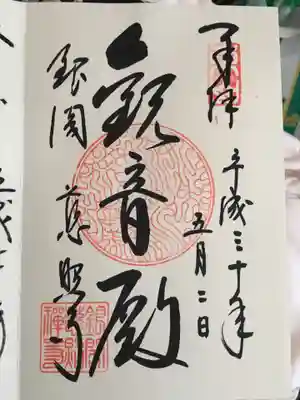 奉拝
平成三十年
五月二日
観音殿
銀閣
慈照寺